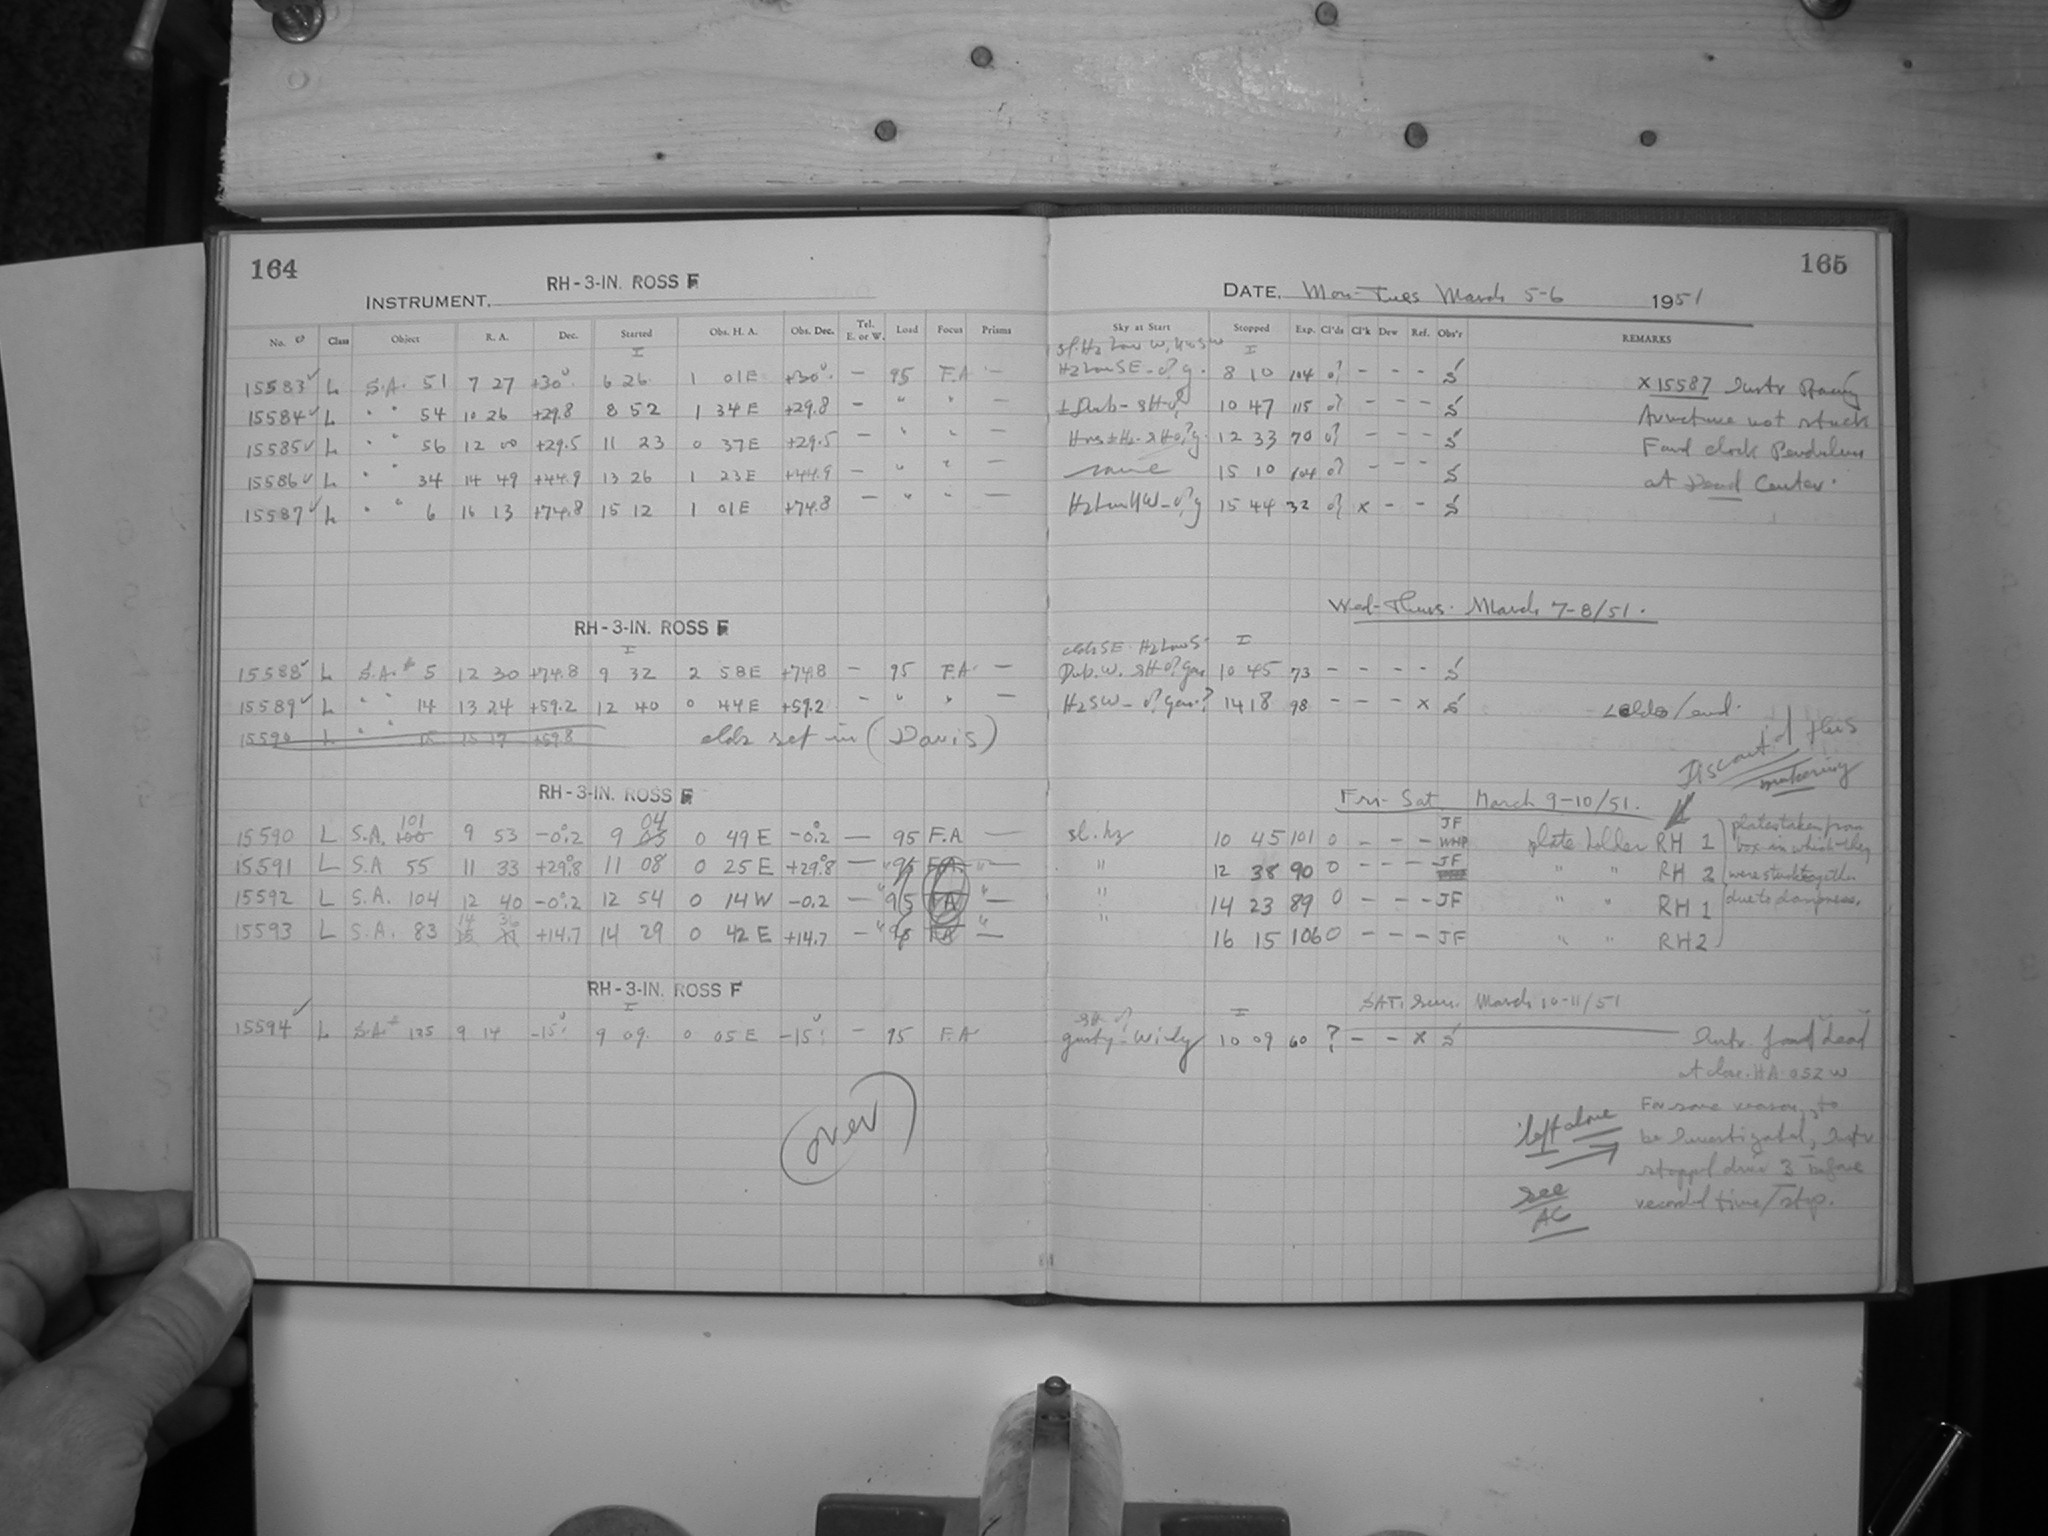 164
RH-3-IN. ROSS F
INSTRUMENT.
No. Class Object R. A. Dec. Started Obs. H. A. Obs. Dec. Tel. E. or W. Load Focus Prisms
I
15583 ✓ L S.A. 51 7 27 +30° 6 26 1 01E +30° — 95 F.A —
15584 ✓ L " " 54 10 26 +29.8 8 52 1 34 E +29.8 — " " —
15585 ✓ L " " 56 12 00 +29.5 11 23 0 37E +29.5 — " " —
15586 ✓ L " " 34 14 49 +44.9 13 26 1 23E +44.9 — " " —
15587 ✓ L " " 6 16 13 +74.8 15 12 1 01E +74.8 — " " —
RH-3-IN. ROSS F
I
15588 ✓ L S.A.# 5 12 30 +74.8 9 32 2 58E +74.8 — 95 F.A. —
15589 ✓ L " " 14 13 24 +59.2 12 40 0 44E +59.2 — " " —
15590 L " " 15 15 17 +59.8 clds set in (Davis)
RH-3-IN. ROSS F
101 04
15590 L S.A. 100 9 53 -0°.2 9 03 0 49 E -0°.2 — 95 F.A —
15591 L S.A 55 11 33 +29°.8 11 08 0 25 E +29°.8 — " 95 F.A. " —
15592 L S.A. 104 12 40 -0°.2 12 54 0 14 W -0.2 — " 95 FA " —
14 36
15593 L S.A. 83 +14.7 14 29 0 42 E +14.7 — " 95 FA " —
RH-3-IN. ROSS F
I
15594 ✓ L S.A.# 135 9 14 -15° 9 09. 0 05 E -15° — 95 F.A
(over)
165
DATE, Mon-Tues March 5-6 1951
Sky at Start Stopped Exp. Cl'ds Cl'k Dew Ref. Obs'r REMARKS
I
Hz Low SE - g. 8 10 104 - - - S
10 47 115 - - - S
12 33 70 - - - S
same 15 10 104 - - - S
Hz Low NW - g 15 44 32 x - - S
x 15587 Instr
Armature not stuck
Found clock Pendulum
at Dead Center.
Wed-Thurs. March 7-8/51.
clds SE. Hz Low S. I
10 45 73 - - - - S
Hz SW - 14 18 98 - - - x S
clds/end.
Discount all this
Fri-Sat March 9-10/51.
JF
sl. hz 10 45 101 0 - - - WHP plate holder RH 1
" 12 38 90 0 - - - JF " " RH 2
" 14 23 89 0 - - - JF " " RH 1
" 16 15 106 0 - - - JF " " RH 2
plates taken from
box in which they
were stuck together
due to dampness.
SAT. Sun. March 10-11/51
I
gusty - Windy 10 09 60 ? - - x S Instr. found dead
at close. HA 0 52 W
left alone → For some reason, to
be investigated, Instr
stopped before
see AC record time/stop.